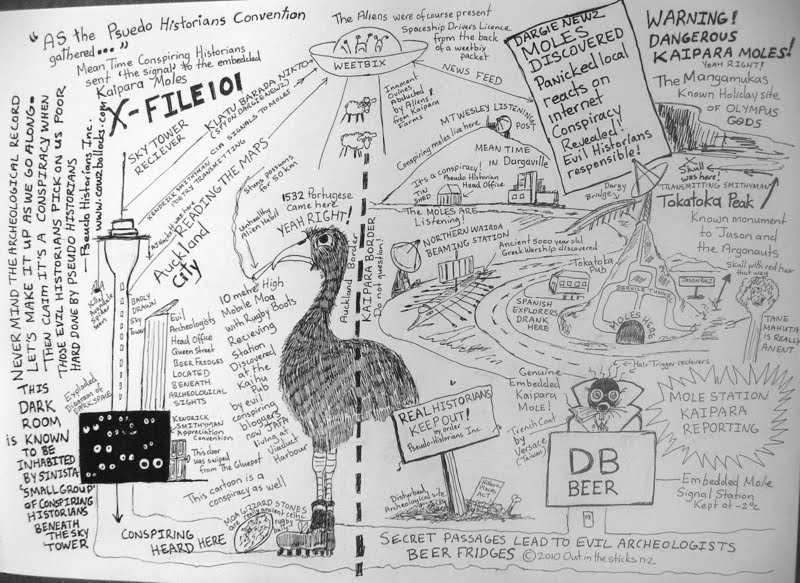 "AS THE PSUEDO HISTORIANS CONVENTION
gathered..."
Mean Time Conspiring Historians
sent 'the signal' to the embedded
Kaipara Moles
X-FILE101
The Aliens were of course present
Spaceship Drivers Licence
from the back
of a weetbix
packet
WEETBIX
NEWS FEED
DARGIE NEWZ
MOLES
DISCOVERED
Panicked local
reacts on
internet
Conspiracy
Revealed!
Evil Historians
responsible!
WARNING!
DANGEROUS
KAIPARA MOLES!
YEAH RIGHT!
The Mangamukas
Known Holiday site
of OLYMPUS
GODS
NEVER MIND THE ARCHEOLOGICAL RECORD
LET'S MAKE IT UP AS WE GO ALONG -
THEN CLAIM IT'S A CONSPIRACY WHEN
THOSE EVIL HISTORIANS PICK ON US POOR
HARD DONE BY PSEUDO HISTORIANS
- Pseudo Historians Inc.
www.cowzbollocks.com
SKY TOWER
RECIEVER
KLATU BARADA NIKTO
(SPY ON DARGIE NEWZ)
CIA SIGNALS TO MOLES
KENDRICK SMITHYMAN
POETRY TRANSMITTING
READING THE MAPS
Auckland
City
Innocent
Ovines
Abducted
by Aliens
from Kaipara
Farms
Stuns possums
for 50 km
Unhealthy
Alien Habit
1532 Portugese
came here
YEAH RIGHT!
Auckland Border
KAIPARA BORDER
Do not question!
MT WESLEY LISTENING
POST
Conspiring moles live here
MEAN TIME
in Dargaville
It's a conspiracy!
Pseudo Historian
Head Office
TIN
SHED
The MOLES ARE
Listening!
NORTHERN WAIROA
BEAMING STATION
Ancient 5000 year old
Greek Warship discovered
Dargy
Bridge
Skull
was here!
TRANSMITTING SMITHYMAN
TOKATOKA PEAK
Known monument
to Jason and
the Argonauts
Skull with red hair
that way
Tokatoka
Pub
SPANISH
EXPLORERS
DRANK
HERE
SERVICE TUNNEL
MOLES HERE
JASON WOZ
TANE
MAHUTA
IS REALLY
AN ENT
BADLY
DRAWN
Sky
Tower
Evil
Archeologists
Head Office
Queen Street
BEER FRIDGES
LOCATED
BENEATH
ARCHEOLOGICAL
SIGHTS
10 metre High
Mobile Moa
with Rugby Boots
Recieving
Station
Discovered
at the
Kaihu
Pub
by evil
conspiring
bloggers
now JAFA
living in
Viaduct
Harbour
Exploded
Diagram of
DARK SPACE
THIS
DARK
ROOM
IS KNOWN
TO BE
INHABITED
BY SINISTA
'SMALL GROUP'
OF CONSPIRING
HISTORIANS
BENEATH
THE SKY
TOWER
KENDRICK
SMITHYMAN
Appreciation
Convention
This door
was swiped
from The Gluepot
This cartoon is a
conspiracy as well
CONSPIRING
HEARD HERE
MOA GIZZARD STONES
REAL HISTORIANS
KEEP OUT!
by order
Pseudo-Historians Inc.
Disturbed
Archeological site
Historic
Places
ACT
Hair Trigger recievers
Genuine
Embedded
Kaipara
MOLE!
Trench Coat
by
Versace
(Taiwan)
DB
BEER
MOLE STATION
KAIPARA
REPORTING
Embedded Mole
Signal Station
Kept at -2°C
SECRET PASSAGES LEAD TO EVIL ARCHEOLOGISTS
BEER FRIDGES © 2010 Out in the sticks nz